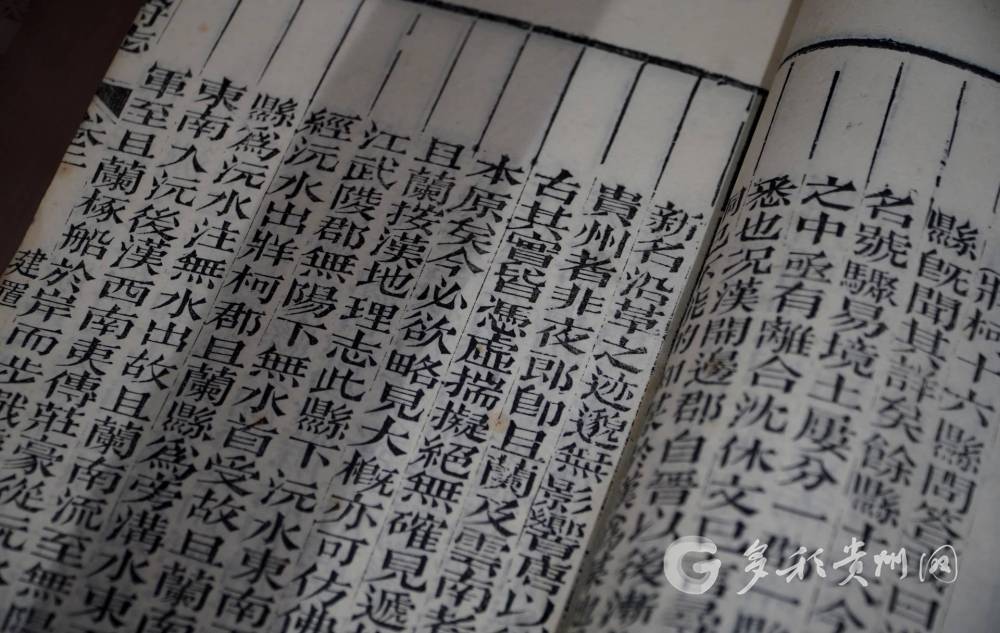 牂柯十六縣問答
縣旣聞其詳矣餘縣十
名號驟易境土屢分一郡一縣
之中亟有離合沈休文
悉也況漢開邊郡自晉以後漸
新名沿革之迹邈無影響唐以
貴州者非夜郎卽且蘭及雲南者
古其實皆憑虛揣擬絕無確見遞
本原矣今必欲略見大概亦可仿佛
且蘭按漢地理志此縣下沅水東南
江武陵郡無陽下無水首受故且蘭南
經沅水出牂柯郡且蘭縣爲旁溝水東
縣爲沅水注無水出故且蘭南流至無陽
東南入沅後漢西南夷傳莊豪從沅
軍至且蘭椓船於岸而步戰
府志
卷二
建置
多彩贵州网